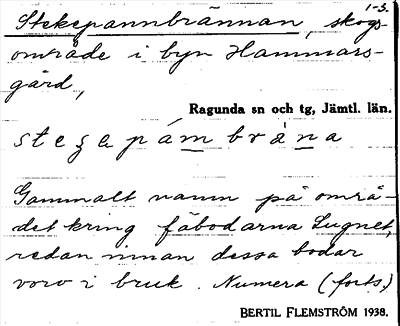 1-3.
Stekepannbrännan, skogs-
område i byn Hammars-
gård,
Ragunda sn och tg, Jämtl. län.
Gammalt namn på områ-
det kring fäbodarna Lugnet,
redan innan dessa bodar
voro i bruk. Numera (forts.)
BERTIL FLEMSTRÖM 1938.